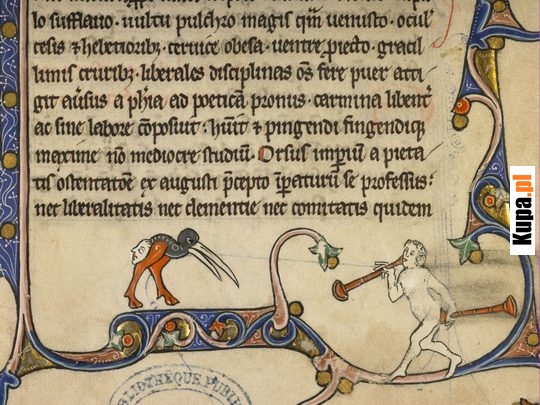 lo sufflauo · uultu pulchro magis qm̄ uenusto · ocul
cesis ⁊ hebetiorib; · ceruice obesa · uentre piecto · gracil
limis cruribz · liberales disciplinas oš fere puer atti
git aūsus a phīa ad poeticā pronus · carmina libent̄
ac sine labore cōposuit · hūit ⁊ pingendi fingendiqz
maxime nō mediocre studiū. Orsus imperiū a pieta
tis ostentatōe ex augusti p̄cepto īpaturū se professus:
nec liberalitatis nec clementie nec comitatis quidem
BLIOTHÈQUE PUBLI
Kupa.pl